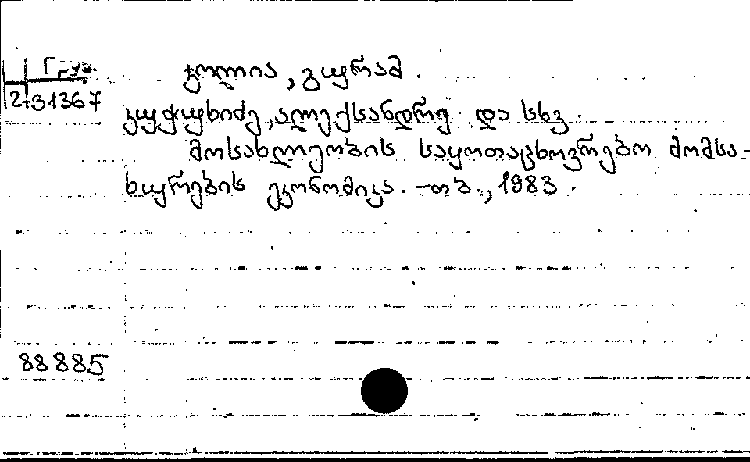 Груз.
2-31367
ჯოლია, გურამ.
კუჭუხიძე, ალექსანდრე და სხვ.
მოსახლეობის საყოფაცხოვრებო მომსა-
ხურების ეკონომიკა. – თბ., 1983.
88885